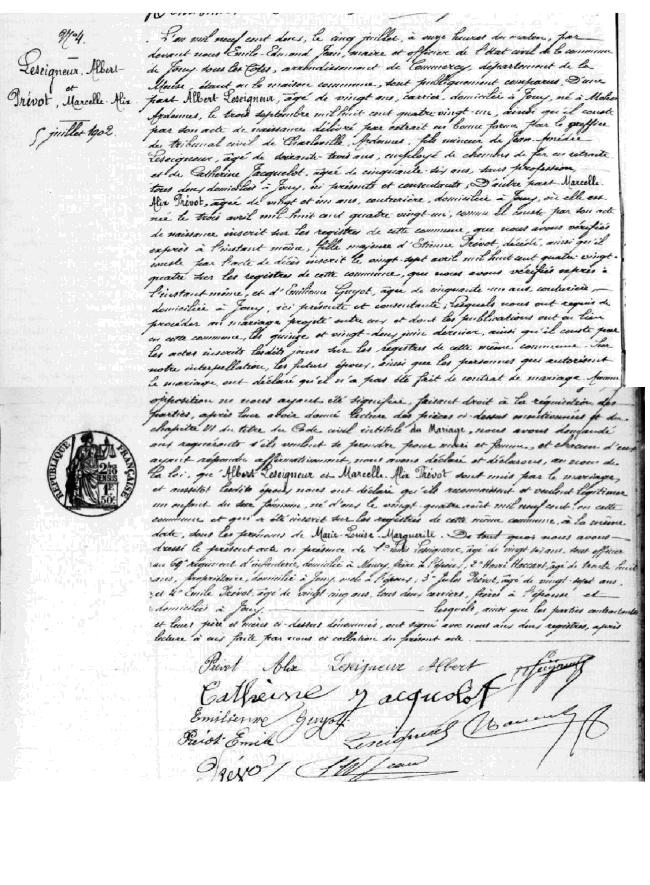 N° 4.
Leseigneur, Albert
et
Prévot, Marcelle-Alix
5 juillet 1902.
L'an mil neuf cent deux, le cinq juillet, à onze heures du matin, par
devant nous Emile-Edmond Jean, maire et officier de l'état civil de la commune
de Jouy sous les Côtes, arrondissement de Commercy, département de la
Meuse, étant en la maison commune, sont publiquement comparus D'une
part Albert Leseigneur, âgé de vingt ans, carrier, domicilié à Jouy, né à Mohon
Ardennes, le trois septembre mil huit cent quatre vingt-un, ainsi qu'il conste
par son acte de naissance délivré par extrait en bonne forme par le greffier
du tribunal civil de Charleville Ardennes, fils mineur de Jean-Amédée
Leseigneur, âgé de soixante trois ans, employé de chemins de fer en retraite
et de Catherine Jacquelot, âgée de cinquante six ans, sans profession,
tous deux domiciliés à Jouy, ici présents et consentants; D'autre part Marcelle
Alix Prévot, âgée de vingt et un ans, couturière, domiciliée à Jouy, où elle est
née le trois avril mil huit cent quatre vingt-un, comme il conste par son acte
de naissance inscrit sur les registres de cette commune, que nous avons vérifiés
exprès à l'instant même, fille majeure d'Etienne Prévot, décédé, ainsi qu'il
conste par l'acte de décès inscrit le vingt-sept avril mil huit cent quatre vingt-
quatre sur les registres de cette commune, que nous avons vérifiés exprès à
l'instant même, et d'Emilienne Guyot, âgée de cinquante un ans, couturière
domiciliée à Jouy, ici présente et consentante; lesquels nous ont requis de
procéder au mariage projeté entre eux et dont les publications ont eu lieu
en cette commune, les quinze et vingt-deux juin dernier, ainsi qu'il conste par
les actes inscrits lesdits jours sur les registres de cette même commune. Sur
notre interpellation, les futurs époux, ainsi que les personnes qui autorisent
le mariage, ont déclaré qu'il n'a pas été fait de contrat de mariage. Aucune
opposition ne nous ayant été signifiée, faisant droit à la réquisition des
parties, après leur avoir donné lecture des pièces ci-dessus mentionnées et du
chapitre VI du titre du Code civil intitulé du Mariage, nous avons demandé
aux requérants s'ils veulent se prendre pour mari et femme, et chacun d'eux
ayant répondu affirmativement, nous avons déclaré et déclarons, au nom de
la loi, que Albert Leseigneur et Marcelle Alix Prévot sont unis par le mariage,
et aussitôt lesdits époux nous ont déclaré qu'ils reconnaissent et veulent légitimer
un enfant du sexe féminin, né d'eux le vingt-quatre août mil neuf cent en cette
commune et qui a été inscrit sur les registres de cette même commune, à la même
date, sous les prénoms de Marie-Louise-Marguerite. De tout quoi nous avons
dressé le présent acte en présence de 1° Leseigneur, âgé de vingt six ans, sous officier
au 69e régiment d'infanterie, domicilié à Nancy, frère à l'époux, 2° Henri Hoccart, âgé de trente huit
ans, propriétaire, domicilié à Jouy, à l'époux, 3° Jules Prévot, âgé de vingt-sept ans,
et 4° Emile Prévot, âgé de vingt cinq ans, tous deux carriers, frères à l'épouse et
domiciliés à Jouy, lesquels, ainsi que les parties contractantes
et leurs père et mères ci-dessus dénommés, ont signé avec nous aux deux registres, après
lecture à eux faite par nous et collation du présent acte
RÉPUBLIQUE FRANÇAISE
Prévot Alix Leseigneur Albert
Catherine Jacquelot
Emilienne Guyot
Prévot Emile Leseigneur
Prévot Jean